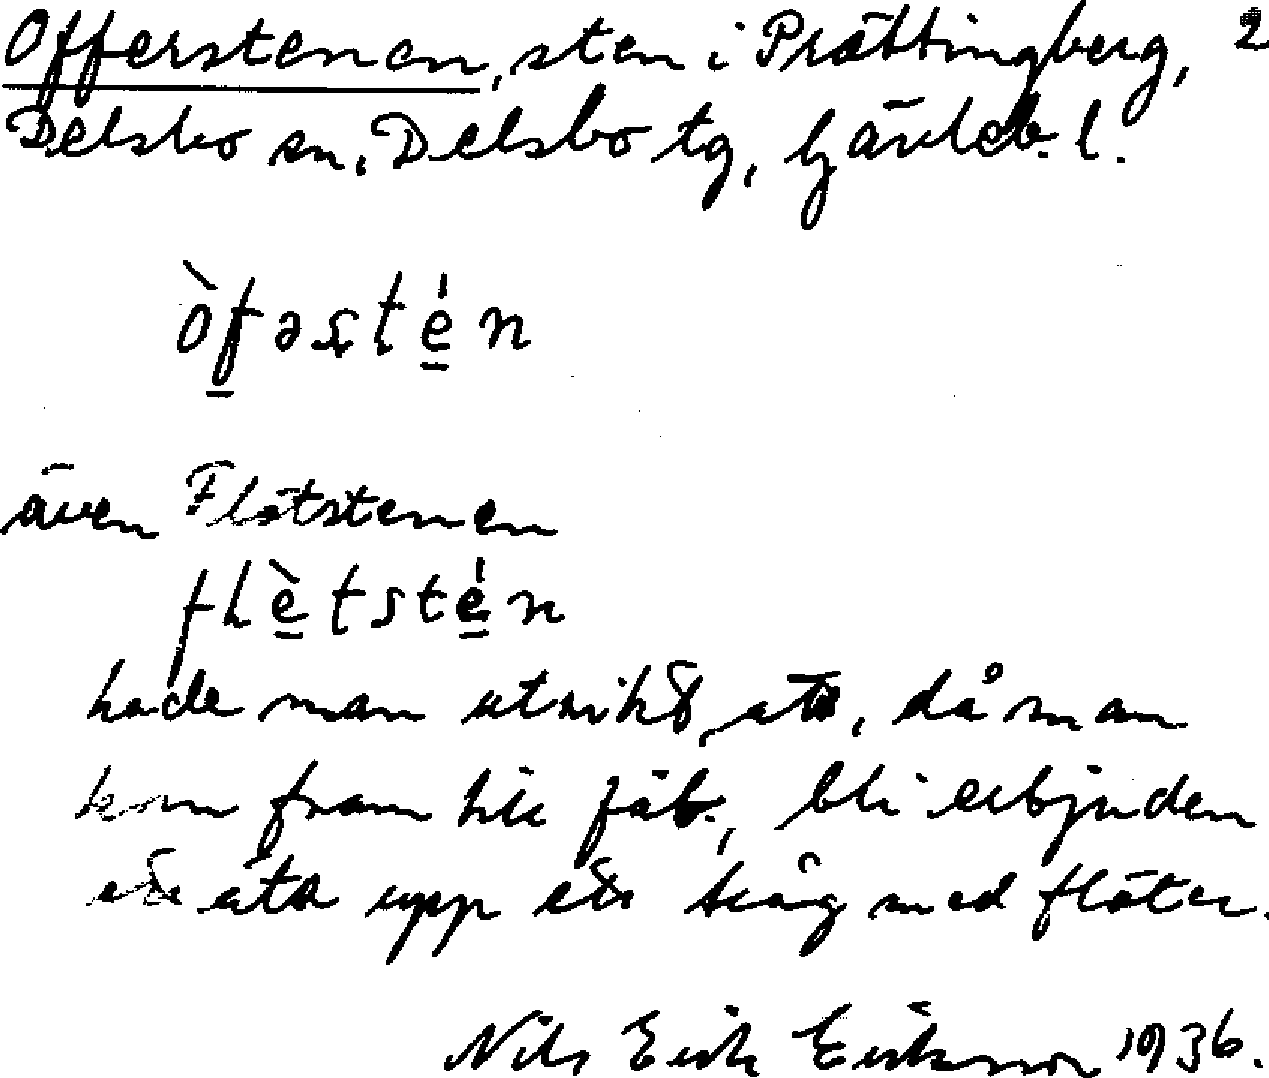 Offerstenen, sten i Prästtingberg, 2
Delsbo sn, Delsbo tg, Gävleb. l.
òfəstén
även Flötstenen
flètstén
hade man utvikt, då man
kom fram till fäb., bli erbjuden
äta upp ett tråg med flöter.
Nils Erik Eriksson 1936.